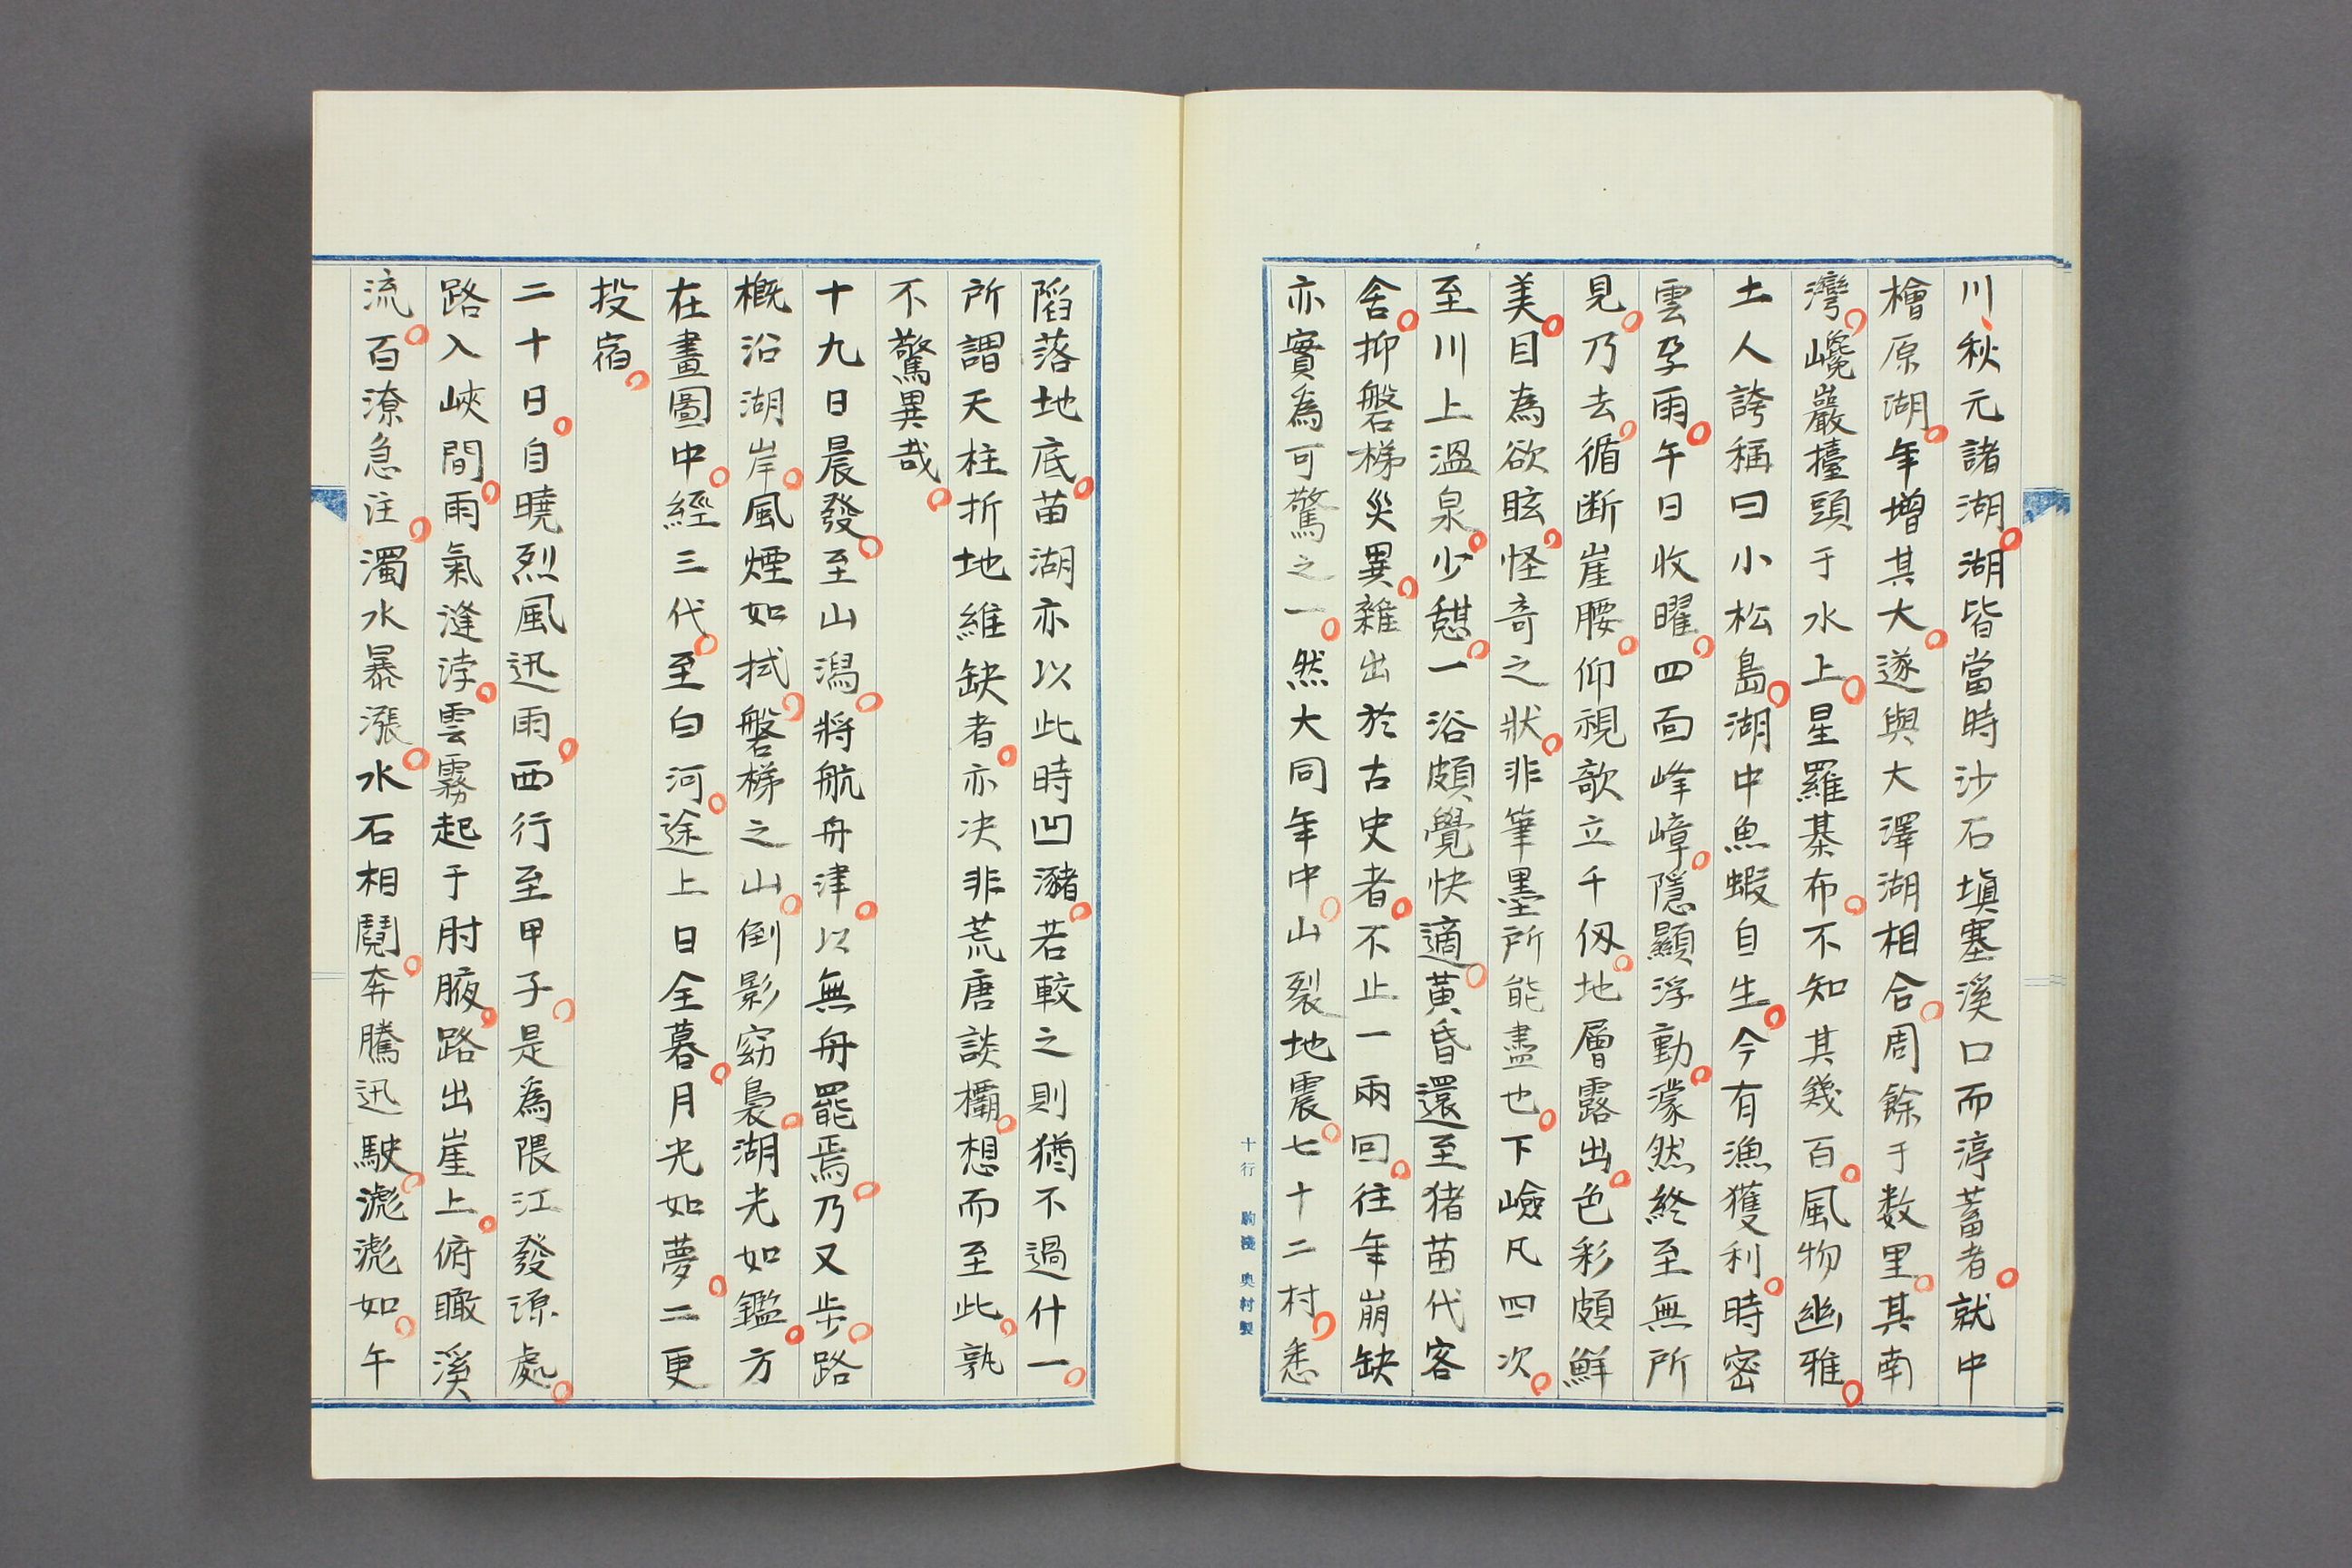 川、秋元諸湖。湖皆當時沙石塡塞溪口而渟蓄者。就中
檜原湖。年增其大。遂與大澤湖相合。周餘于数里。其南
灣。巉巖擡頭于水上。星羅棊布。不知其幾百。風物幽雅。
土人誇稱曰小松島。湖中魚蝦自生。今有漁獲利。時密
雲孕雨。午日收曜。四面峰嶂。隱顯浮動。濛然終至無所
見。乃去。循断崖腰。仰視欹立千仭。地層露出。色彩頗鮮
美。目為欲眩。怪奇之狀。非筆墨所能盡也。下嶮凡四次。
至川上溫泉。少憩。一浴頗覺快適。黃昏還至猪苗代客
舍。抑磐梯災異。雜出於古史者。不止一兩回。往年崩缺
亦實為可驚之一。然大同年中。山裂地震。七十二村。悉
十行 駒淺 奥村製
陷落地底。苗湖亦以此時凹瀦。若較之則猶不過什一。
所謂天柱折地維缺者。亦决非荒唐談欛。想而至此。孰
不驚異哉。
十九日晨發。至山潟。將航舟津。以無舟罷焉。乃又步。路
概沿湖岸。風煙如拭。磐梯之山。倒影窈裊。湖光如鑑。方
在畫圖中。經三代。至白河。途上日全暮。月光如夢。二更
投宿。
二十日。自曉烈風迅雨。西行至甲子。是為隈江發源處。
路入峽間。雨氣漨浡。雲霧起于肘腋。路出崖上。俯瞰溪
流。百潦急注。濁水暴漲。水石相鬪。奔騰迅駛。滮滮如。午